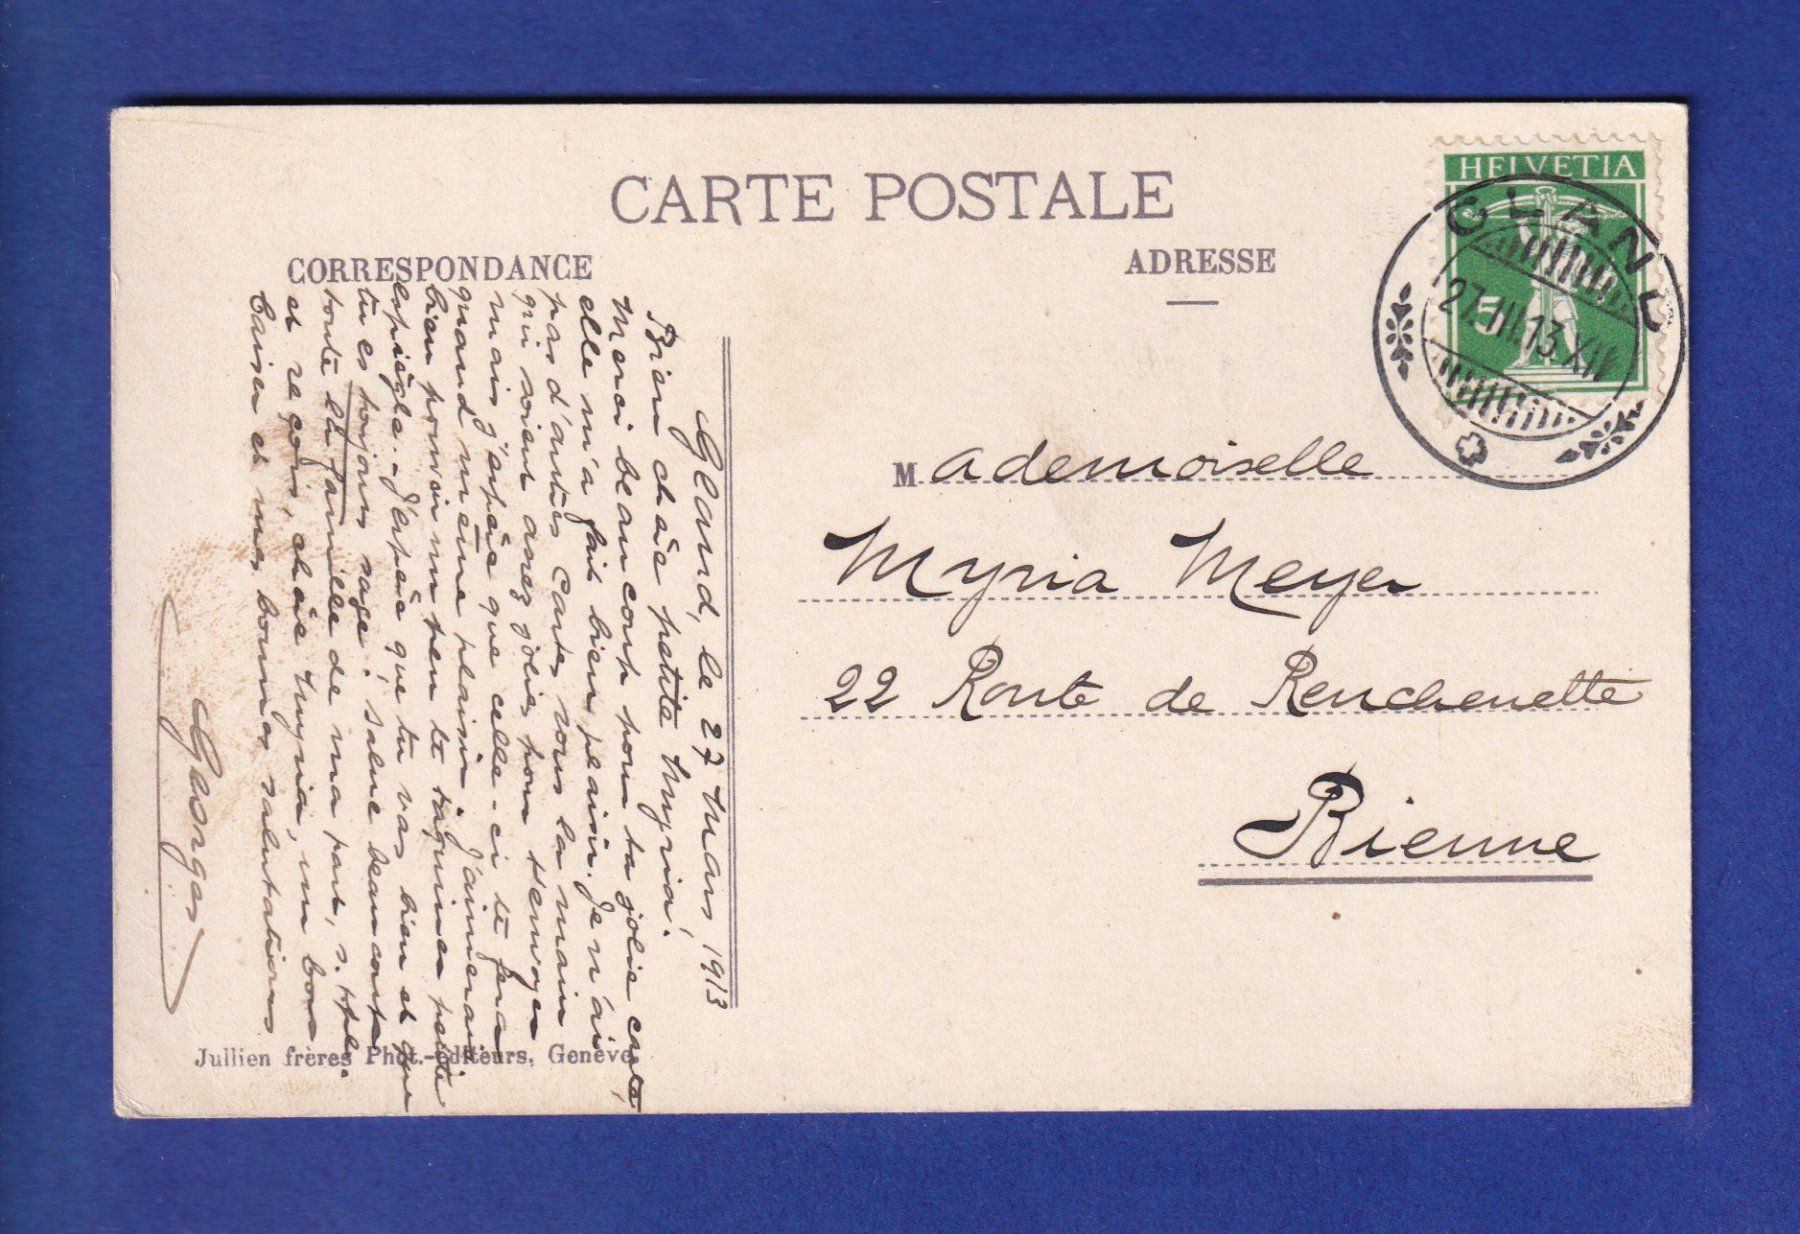 CARTE POSTALE
CORRESPONDANCE
ADRESSE
HELVETIA
5
GLAND
27.III.13.XII
Mademoiselle
Myria Meyer
22 Route de Renchenette
Bienne
Gland, le 27 Mars, 1913
Bien chère petite Myria!
Merci beaucoup pour ta jolie carte,
elle m'a fait bien plaisir. Je n'ai
pas d'autres cartes sous la main
qui soient assez jolies pour t'envoyer
mais j'espère que celle-ci te fera
quand même plaisir. J'aimerais
bien pouvoir un peu te taquiner petite
espiègle. - J'espère que tu vas bien et que
tu es toujours sage! salue beaucoup
toute la famille de ma part, s. tpl.
et reçois, chère Myria, un bon
baiser et mes bonnes salutations
Georges
Jullien frères Phot.-éditeurs, Genève